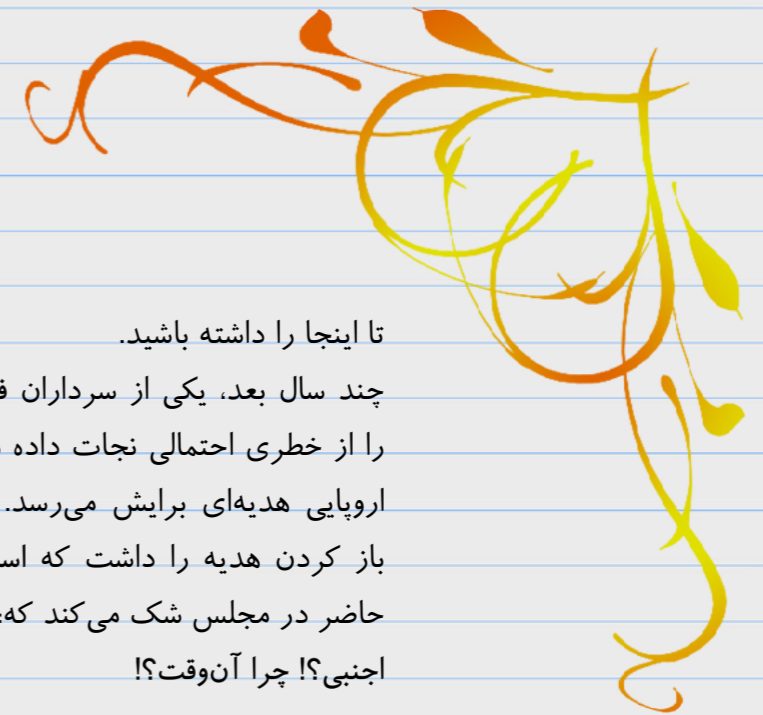 تا اینجا را داشته باشید.
چند سال بعد، یکی از سرداران
را از خطری احتمالی نجات داده
اروپایی هدیه‌ای برایش می‌رسد.
باز کردن هدیه را داشت که
حاضر در مجلس شک می‌کند که،
اجنبی؟! چرا آن‌وقت؟!